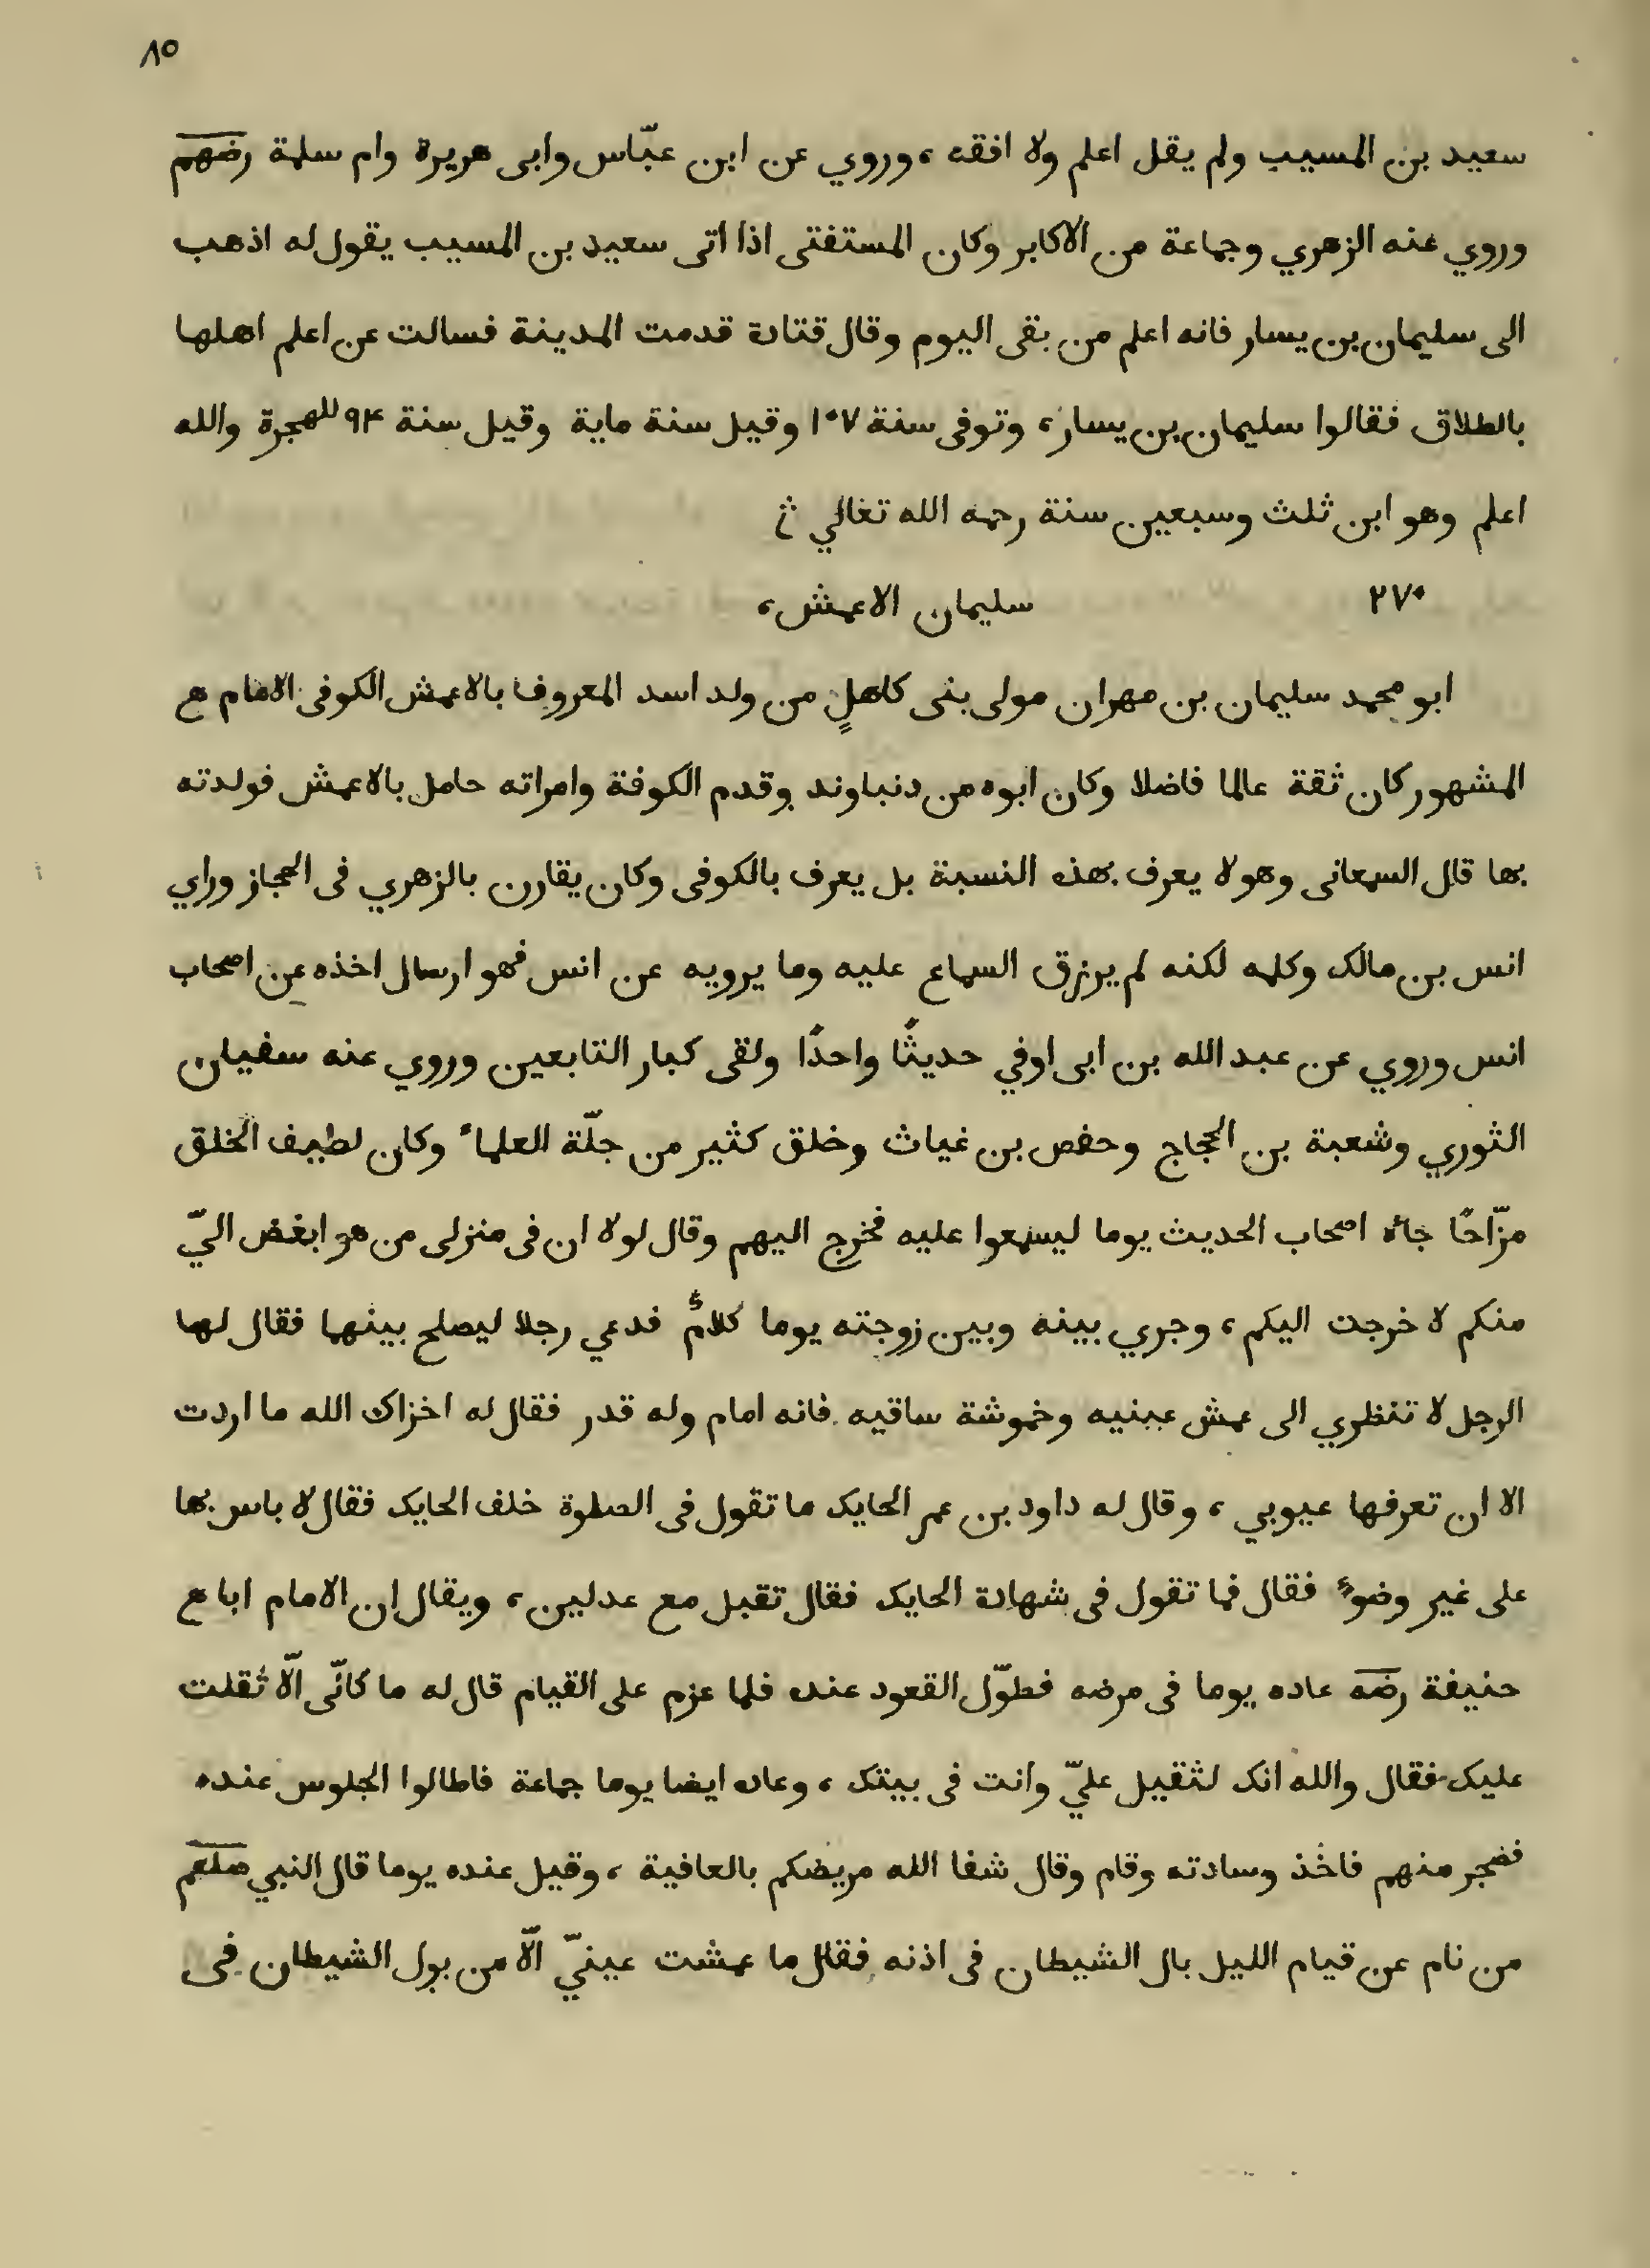 ٨٥
سعيد بن المسيب ولم يقل اعلم ولا افقه ، وروي عن ابن عبّاس وابى هريرة وام سلمة رضهم
وروي عنه الزهري وجماعة من الاكابر وكان المستفتى اذا اتى سعيد بن المسيب يقول له اذهب
الى سليمان بن يسار فانه اعلم من بقى اليوم وقال قتادة قدمت المدينة فسالت عن اعلم اهلها
بالطلاق فقالوا سليمان بن يسار ، وتوفى سنة ١٠٧ وقيل سنة ماية وقيل سنة ٩٤ للهجرة والله
اعلم وهو ابن ثلث وسبعين سنة رحمه الله تعالي
٢٧٠ سليمان الاعمش ،
ابو محمد سليمان بن مهران مولى بنى كاهلٍ من ولد اسد المعروف بالاعمش الكوفى الامام ع
المشهور كان ثقة عالما فاضلا وكان ابوه من دنباوند وقدم الكوفة وامراته حامل بالاعمش فولدته
بها قال السمعانى وهو لا يعرف بهذه النسبة بل يعرف بالكوفى وكان يقارن بالزهري فى الحجاز وراي
انس بن مالك وكلمه لكنه لم يرزق السماع عليه وما يرويه عن انس فهو ارسال اخذه عن اصحاب
انس وروي عن عبد الله بن ابى اوفي حديثًا واحدًا ولقى كبار التابعين وروي عنه سفيان
الثوري وشعبة بن الحجاج وحفص بن غياث وخلق كثير من جلّة العلماء وكان لطيف الخلق
مزّاحًا جائه اصحاب الحديث يوما ليسمعوا عليه فخرج اليهم وقال لولا ان فى منزلى من هو ابغض اليّ
منكم لا خرجت اليكم ، وجري بينه وبين زوجته يوما كلامٌ فدعي رجلا ليصلح بينهما فقال لها
الرجل لا تنظري الى عمش عينيه وخموشة ساقيه فانه امام وله قدر فقال له اخزاك الله ما اردت
الا ان تعرفها عيوبي ، وقال له داود بن عمر الحايك ما تقول فى الصلوة خلف الحايك فقال لا باس بها
على غير وضوءٍ فقال فما تقول فى شهادة الحايك فقال تقبل مع عدلين ، ويقال ان الامام ابا ع
حنيفة رضه عاده يوما فى مرضه فطوّل القعود عنده فلما عزم على القيام قال له ما كانّى الّا ثقلت
عليك فقال والله انك لثقيل عليّ وانت فى بيتك ، وعاده ايضا يوما جماعة فاطالوا الجلوس عنده
فضجر منهم فاخذ وسادته وقام وقال شفا الله مريضكم بالعافية ، وقيل عنده يوما قال النبي صلعم
من نام عن قيام الليل بال الشيطان فى اذنه فقال ما عمشت عينيّ الّا من بول الشيطان فى